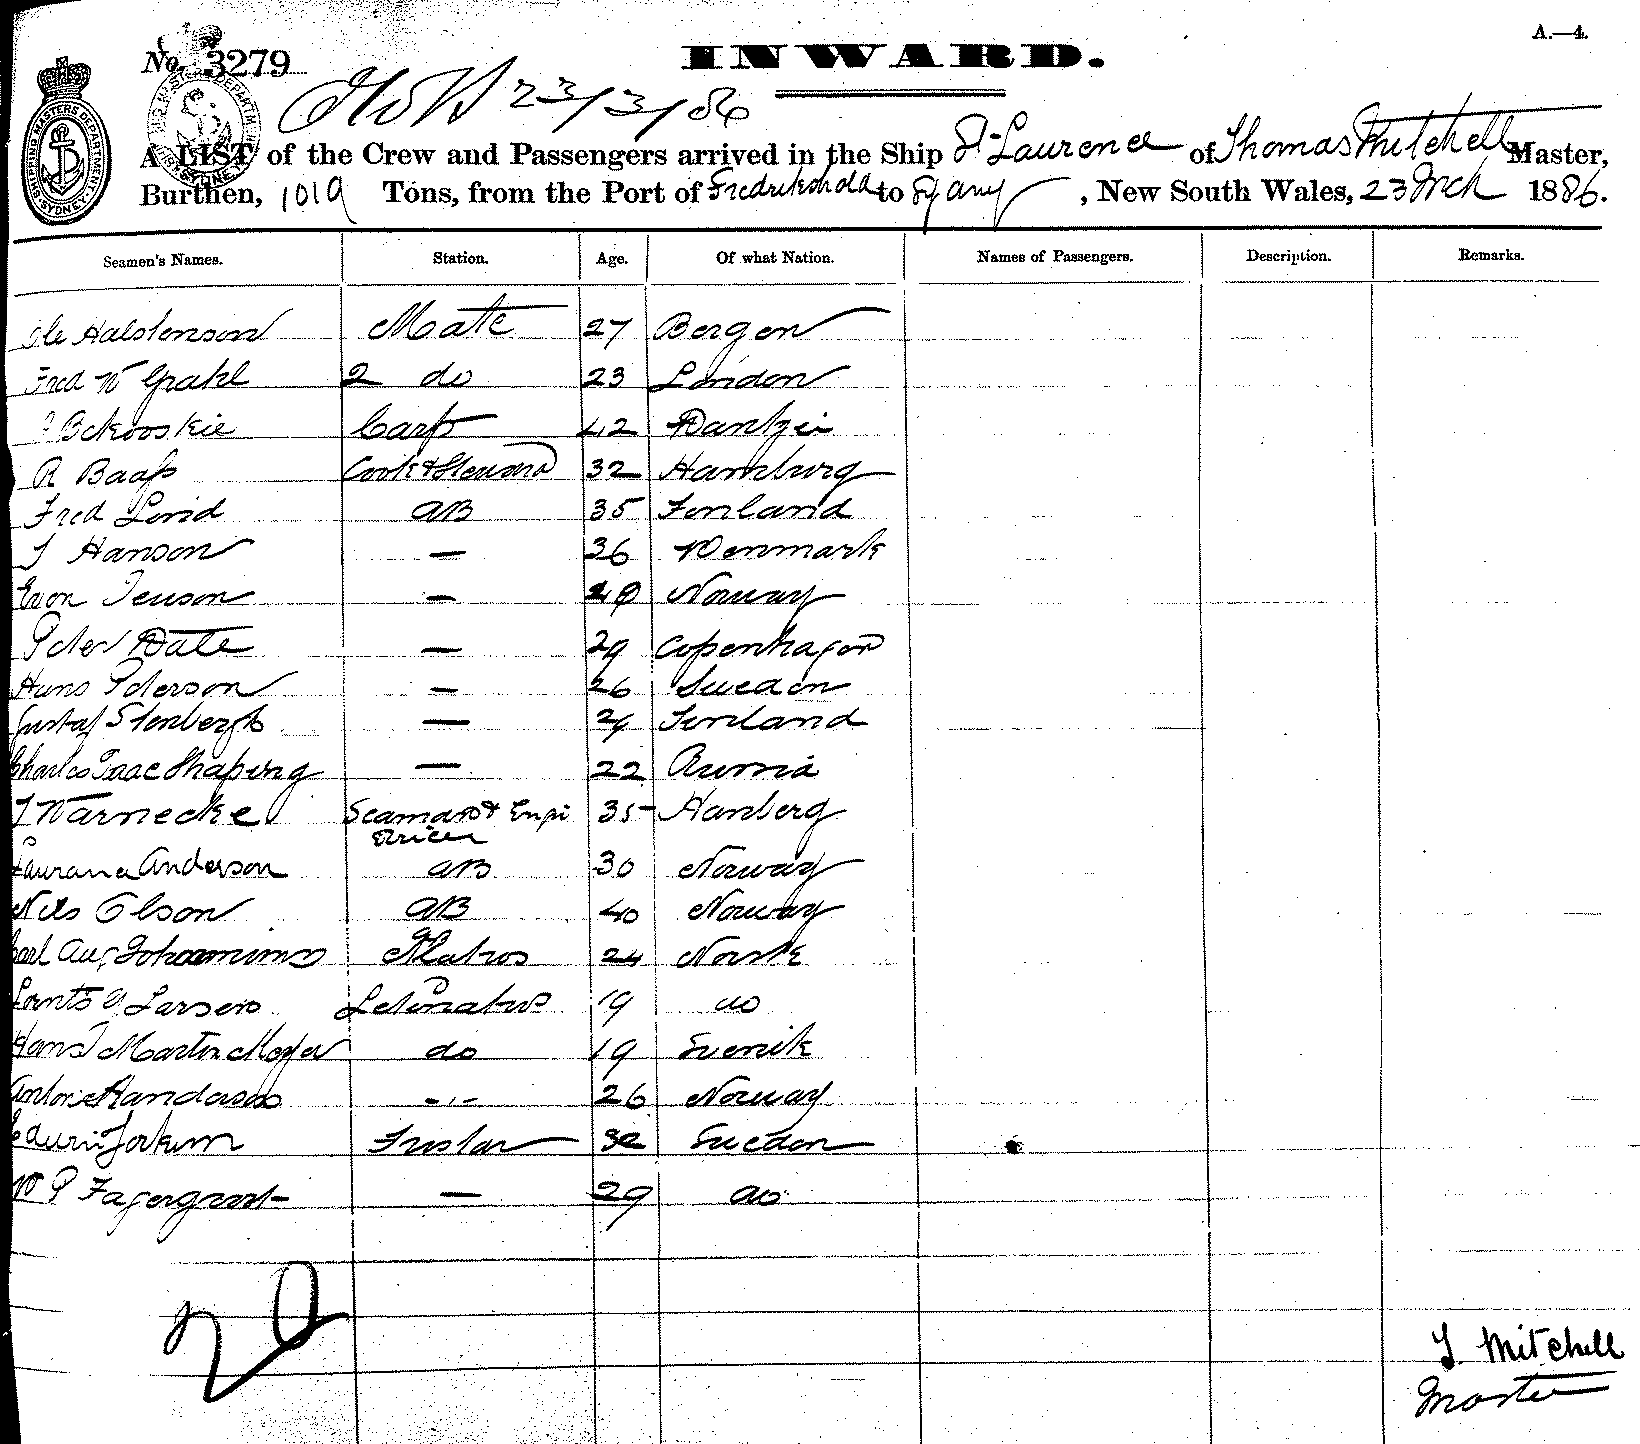 A.—4.
No. 3279
INWARD.
23/3/86
A LIST of the Crew and Passengers arrived in the Ship St Laurence of Thomas Mitchell Master,
Burthen, 1019 Tons, from the Port of to Sydney, New South Wales, 23 Mch 1886.
Seamen's Names. Station. Age. Of what Nation. Names of Passengers. Description. Remarks.
Ole Halstenson Mate 27 Bergen
Fred W Grahl 2 do 23 London
Carp 42 Dantzic
R Baass Cook & Steward 32 Hamburg
Fred Lind AB 35 Finland
J Hanson — 36 Denmark
Jenson — Norway
Peter Date — 29 Copenhagen
Hans Peterson — 26 Sweden
Gustaf Stenbergh — Finland
Charles Isaac Shaping — 22 Russia
J Warnecke Seaman & 35 Hamberg
Anderson AB 30 Norway
Nils Olson AB 40 Norway
Carl Aug Matros 24 Norsk
Larsen 19 do
Hans Martin do 19 Svensk
-"- 26 Norway
32 Sweden
W P — 29 do
T. Mitchell
Master